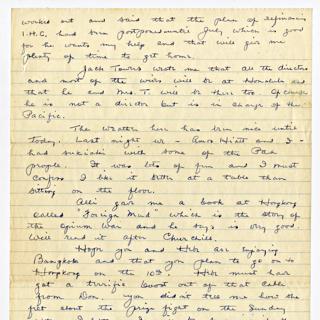 worked out and said that the plan of refinancing
I.H.C. had been postponed until July which is good
for he wants my help and that will give me
plenty of time to get home.
Jack Towers wrote me that all the directors
and most of the wives will be at Honolulu and
that he and Mrs. T. will be there too. Of course
he is not a director but is in charge of the
Pacific.
The weather here has been nice until
today. Last night we - Ann Hiatt and I -
had sukiaki with some of the Pan
people. It was lots of fun and I must
confess I like it better at a table than
sitting on the floor.
Alli gave me a book at Hongkong
called "Foreign Mud" which is the story of
the Opium War and he says is very good.
Will read it after Churchill.
Hope you and Mrs. are enjoying
Bangkok and that you plan to go on to
Hongkong on the 10th. Mrs. must have
got a terrific boost out of that call
from Don. You did not tell me how the
the Sunday